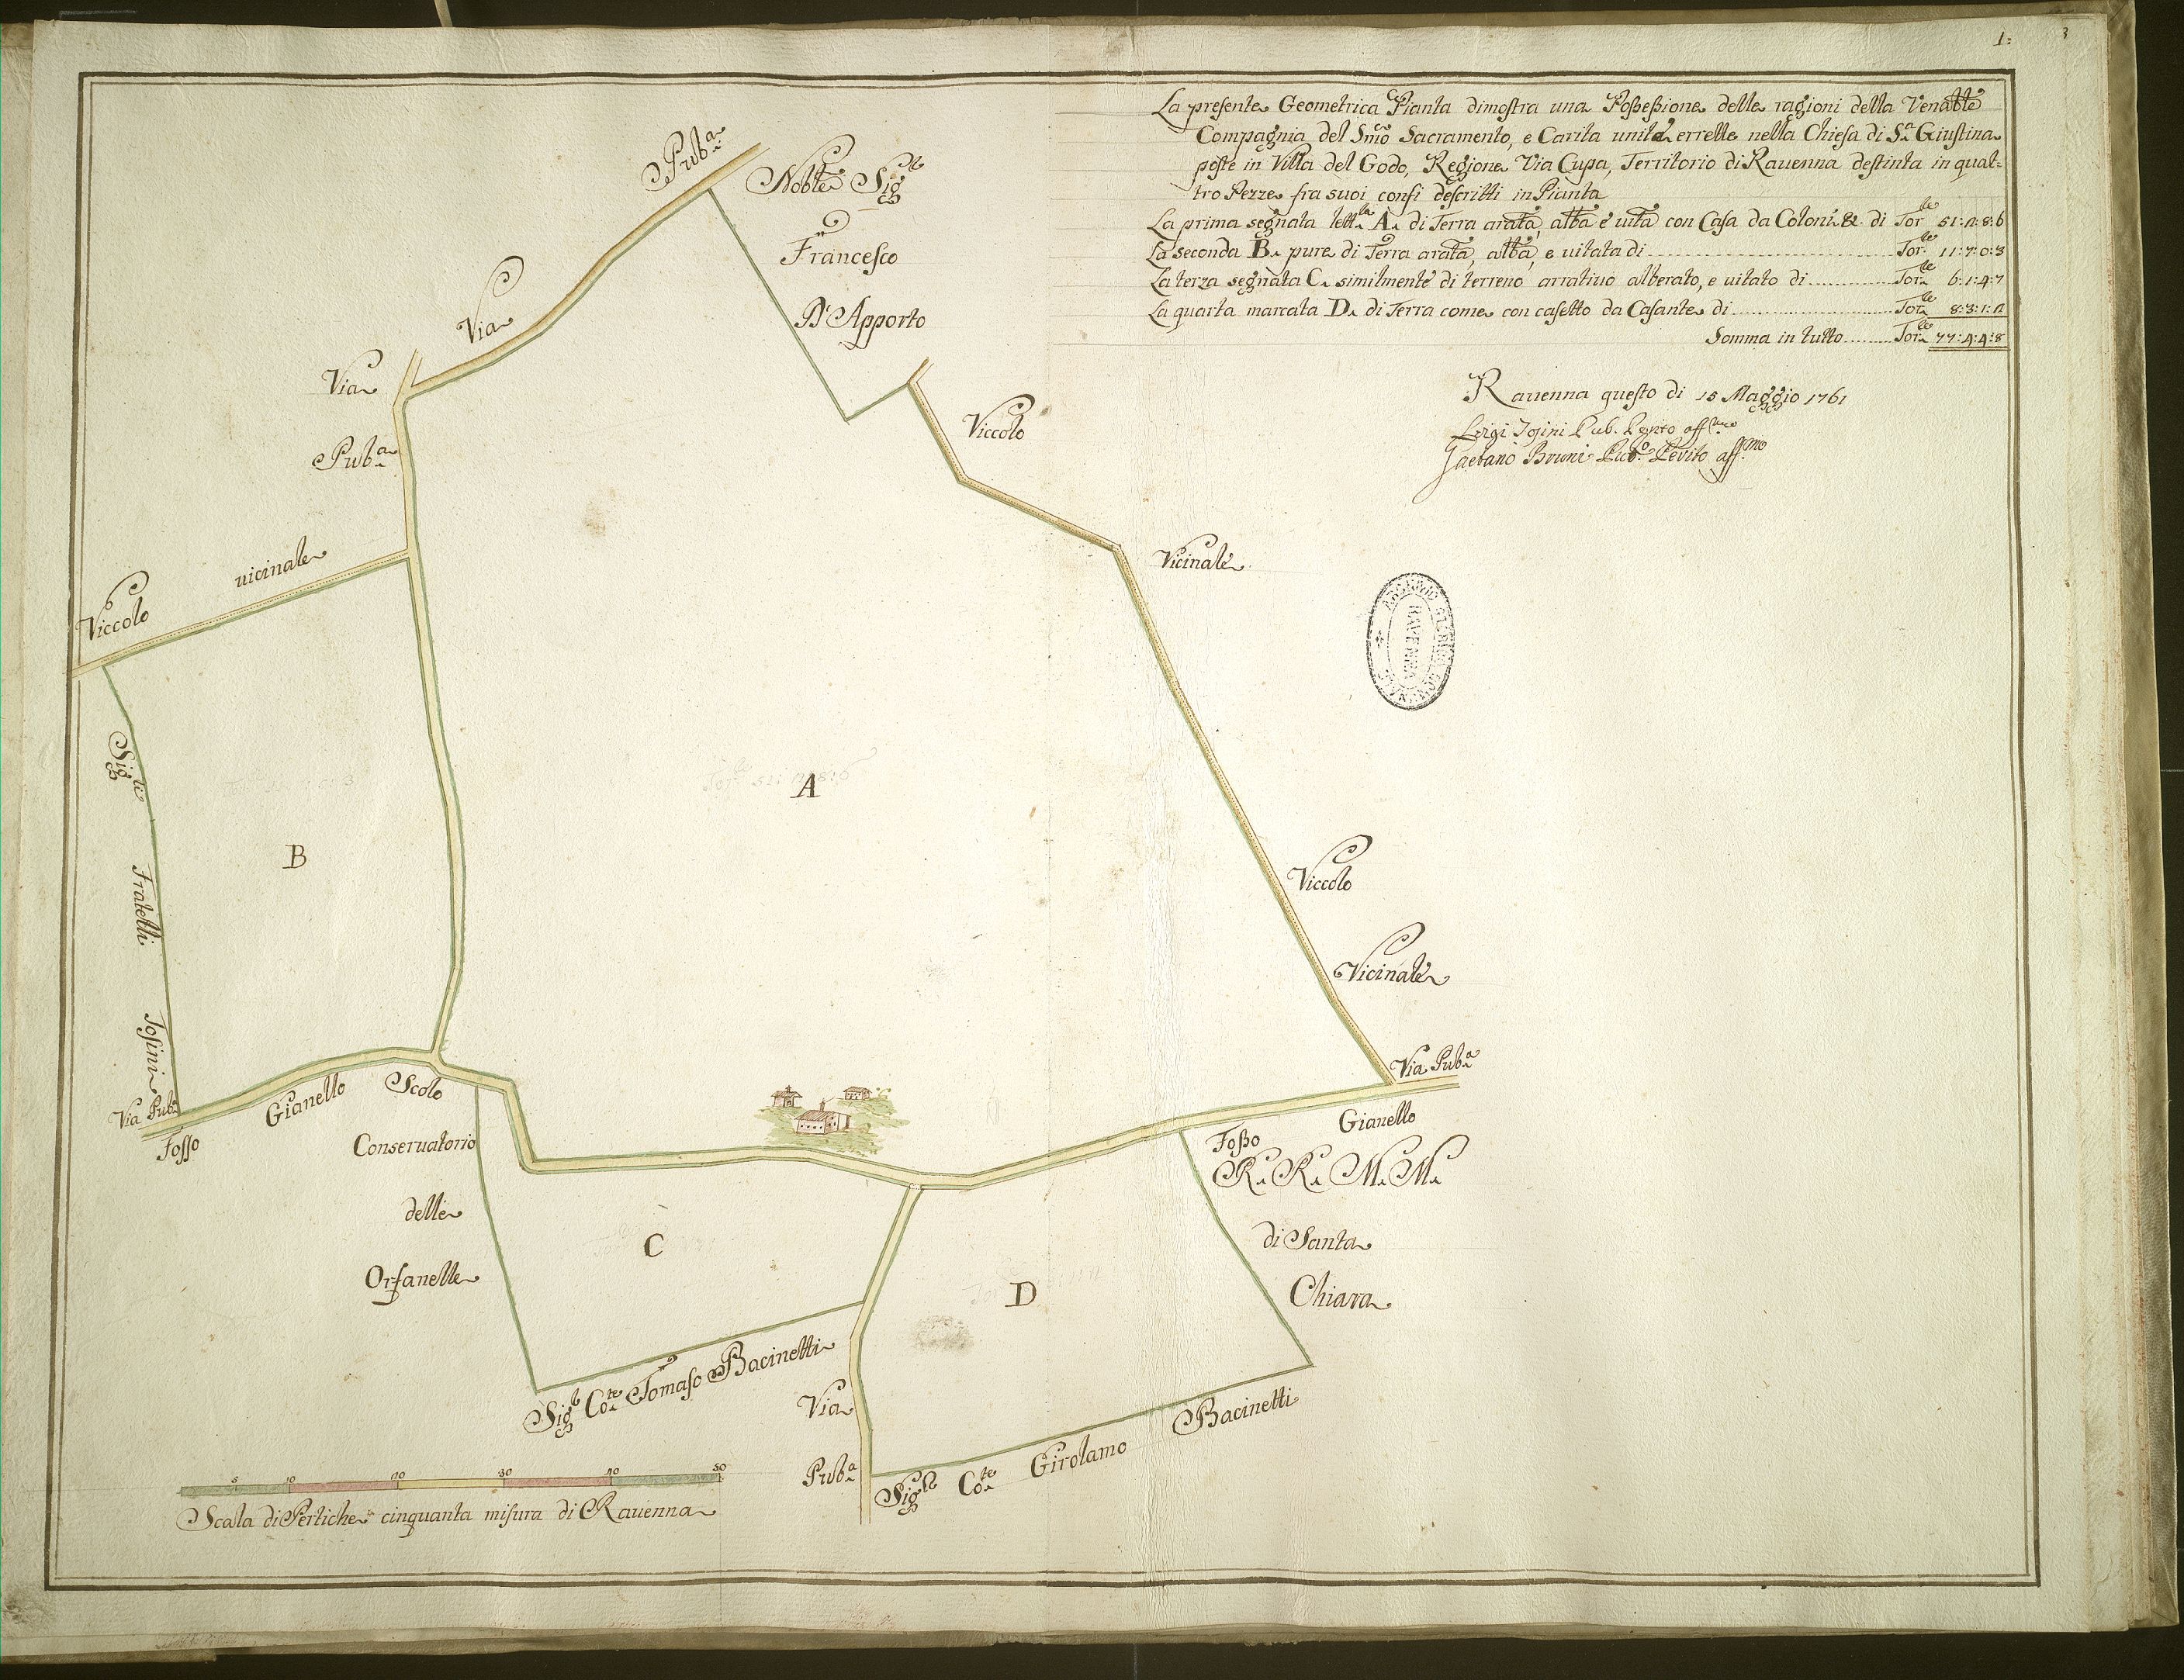 1:
La presente Geometrica Pianta dimostra una Possessione delle ragioni della Venable
Compagnia del Smo Sacramento, e Carita unite errette nella Chiesa di Sa Giustina
poste in Villa del Godo, Regione Via Cupa, Territorio di Rauenna destinta in quat-
tro Pezze fra suoi confi descritti in Pianta
La prima segnata letta A. di Terra arata alba è uita con Casa da Coloni &. di Torle
La seconda B. pure di Terra arata, alba, e uitata di Torle 11:7:0:3
La terza segnata C. similmente di terreno arratiuo alberato, e uitato di Torle 6:1:4:7
La quarta marcata D. di Terra come con casetto da Casante di Torle
Somma in tutto Torle 77:4:4:8
Rauenna questo di 15 Maggio 1761
Luigi Pub. Perito affmo
Gaetano Bruni Pubo Perito affmo
Via Puba
Noble Sigr
Francesco
D'Apporto
Via
Puba
Viccolo
Vicinale
Viccolo uicinale
Sigri Fratelli
A
B
Viccolo
Vicinale
Via Puba
Via Puba
Fosso Gianello Scolo
Gianello
Fosso
R. R. M. M.
di Santa
Chiara
Conseruatorio
delle
Orfanelle
C
D
Sigr Cote Tomaso Bacinetti
Via
Puba
Sigr Cote Girolamo Bacinetti
5 10 20 30 40 50
Scala di Pertiche cinquanta misura di Rauenna
RAVENNA